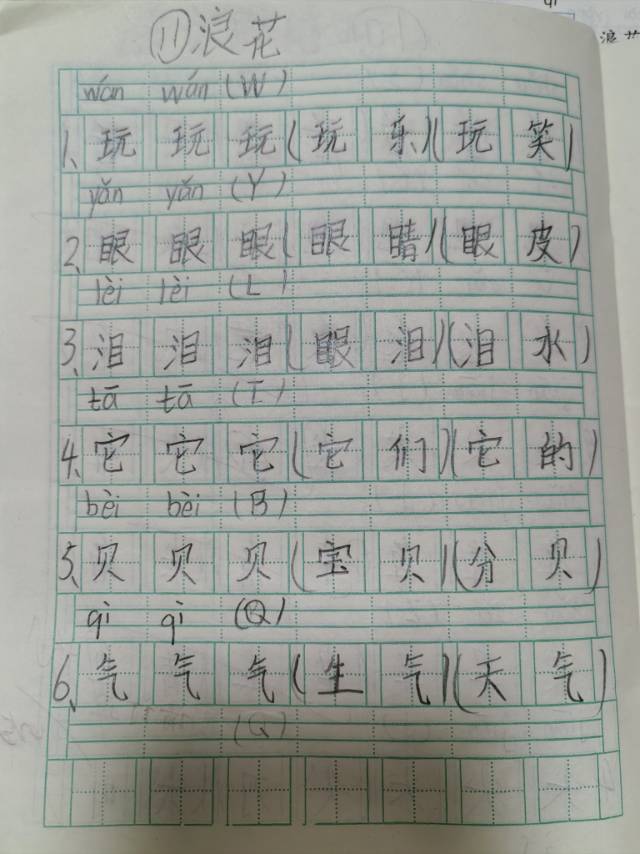 qì
浪花
⑪浪花
wán wán (W)
1、玩 玩 玩(玩 乐)(玩 笑)
yǎn yǎn (Y)
2、眼 眼 眼(眼 睛)(眼 皮)
lèi lèi (L)
3、泪 泪 泪(眼 泪)(泪 水)
tā tā (T)
4、它 它 它(它 们)(它 的)
bèi bèi (B)
5、贝 贝 贝(宝 贝)(分 贝)
qì qì (Q)
6、气 气 气(生 气)(天 气)
(Q)